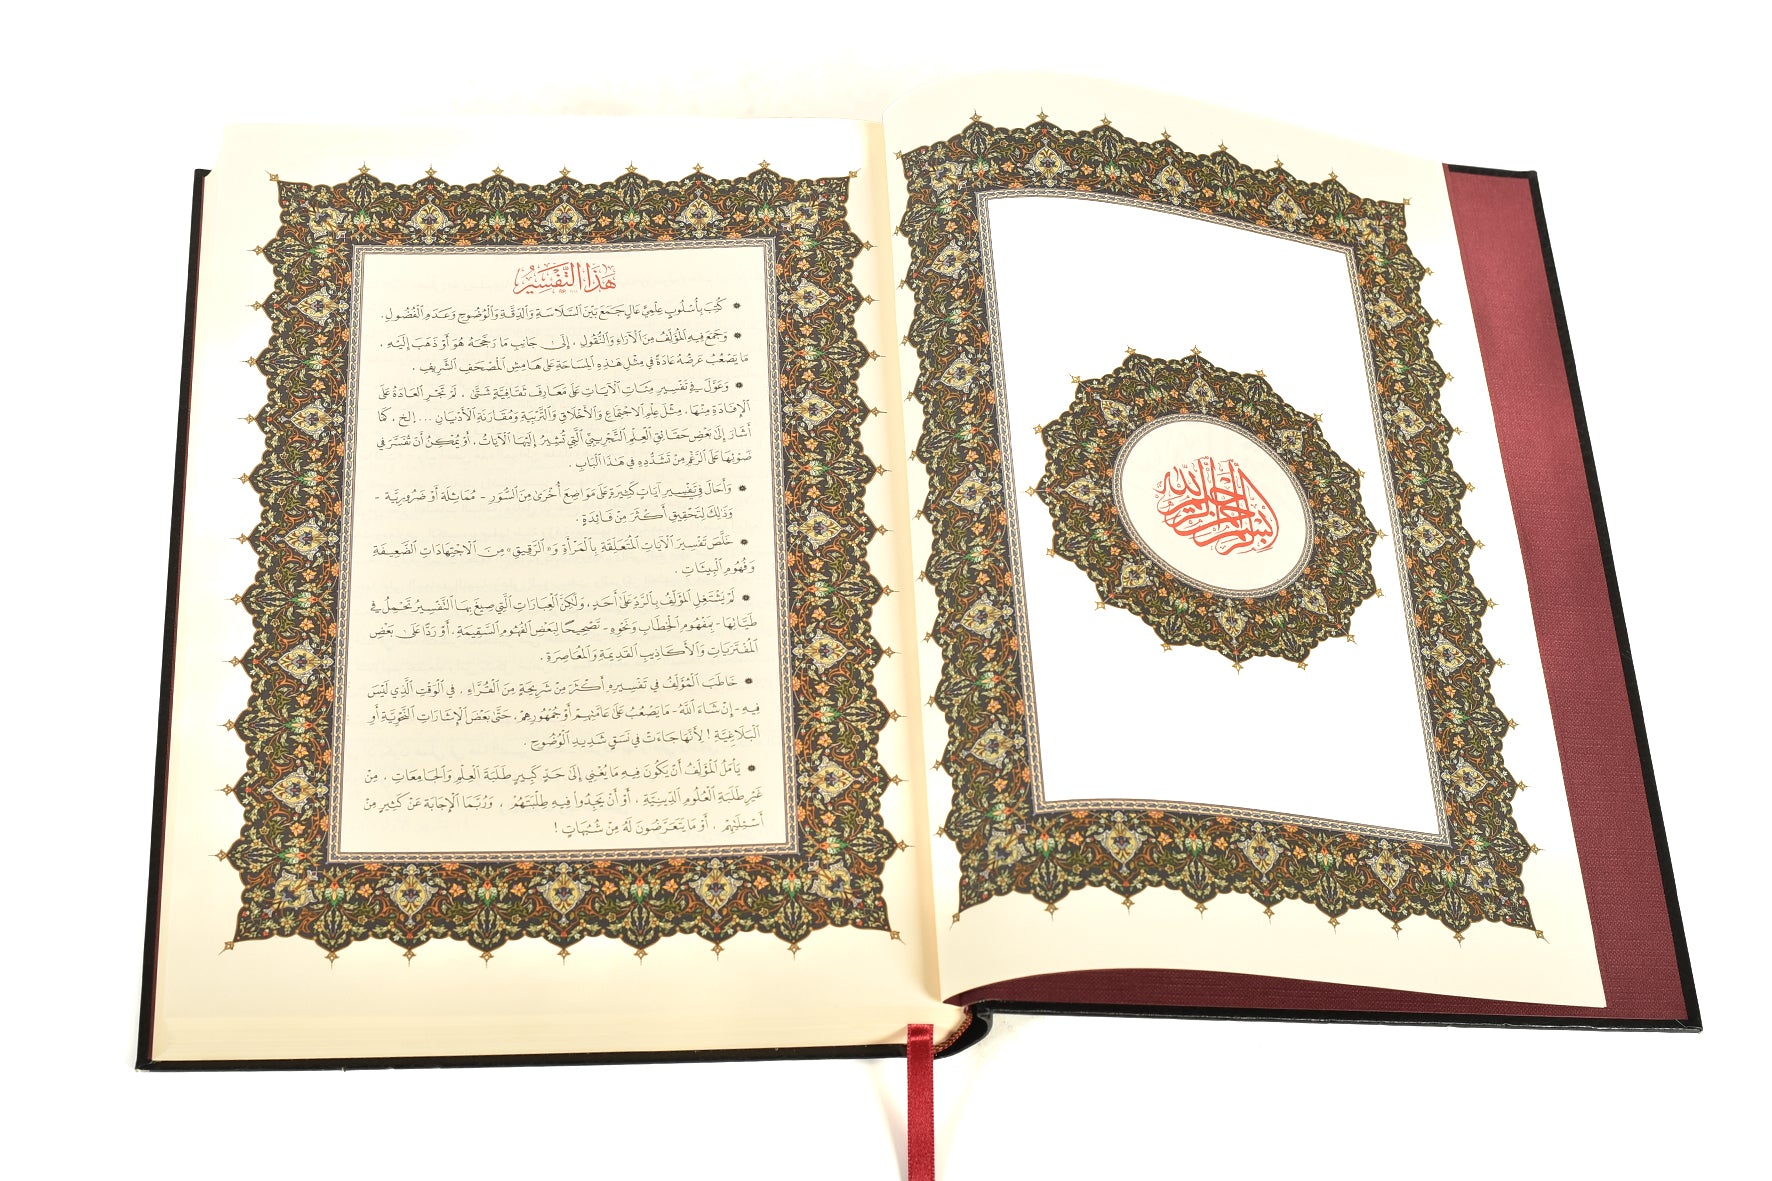 بِسْمِ اللَّهِ الرَّحْمَٰنِ الرَّحِيمِ
هَذَا التَّفْسِيرُ
* كُتِبَ بِأُسْلُوبٍ عِلْمِيٍّ عَالٍ جَمَعَ بَيْنَ السَّلَاسَةِ وَالدِّقَّةِ وَالْوُضُوحِ وَعَدَمِ الْفُضُولِ.
* وَجَمَعَ فِيهِ الْمُؤَلِّفُ مِنَ الْآرَاءِ وَالنُّقُولِ ، إِلَى جَانِبِ مَا رَجَّحَهُ هُوَ أَوْ ذَهَبَ إِلَيْهِ ،
مَا يَصْعُبُ عَرْضُهُ عَادَةً فِي مِثْلِ هَذِهِ الْمِسَاحَةِ عَلَى هَامِشِ الْمُصْحَفِ الشَّرِيفِ .
* وَعَوَّلَ فِي تَفْسِيرِ مِئَاتِ الْآيَاتِ عَلَى مَعَارِفَ ثَقَافِيَّةٍ شَتَّى ، لَمْ تَجْرِ الْعَادَةُ عَلَى
الْإِفَادَةِ مِنْهَا ، مِثْلُ عِلْمِ الِاجْتِمَاعِ وَالْأَخْلَاقِ وَالتَّرْبِيَةِ وَمُقَارَنَةِ الْأَدْيَانِ ... إلخ ، كَمَا
أَشَارَ إِلَى بَعْضِ حَقَائِقِ الْعِلْمِ التَّجْرِيبِيِّ الَّتِي تُشِيرُ إِلَيْهَا الْآيَاتُ ، أَوْ يُمْكِنُ أَنْ تُفَسَّرَ فِي
ضَوْئِهَا عَلَى الرَّغْمِ مِنْ تَشَدُّدِهِ فِي هَذَا الْبَابِ .
* وَأَحَالَ فِي تَفْسِيرِ آيَاتٍ كَثِيرَةٍ عَلَى مَوَاضِعَ أُخْرَى مِنَ السُّوَرِ - مُمَاثِلَةٍ أَوْ ضَرُورِيَّةٍ -
وَذَلِكَ لِتَحْقِيقِ أَكْثَرَ مِنْ فَائِدَةٍ .
* خَلَّصَ تَفْسِيرَ الْآيَاتِ الْمُتَعَلِّقَةِ بِالْمَرْأَةِ وَ«الرَّقِيقِ» مِنَ الِاجْتِهَادَاتِ الضَّعِيفَةِ
وَفُهُومِ الْبِيئَاتِ .
* لَمْ يَشْتَغِلِ الْمُؤَلِّفُ بِالرَّدِّ عَلَى أَحَدٍ ، وَلَكِنَّ الْعِبَارَاتِ الَّتِي صِيغَ بِهَا التَّفْسِيرُ تَحْمِلُ فِي
طَيَّاتِهَا - بِمَفْهُومِ الْخِطَابِ وَنَحْوِهِ - تَصْحِيحًا لِبَعْضِ الْفُهُومِ السَّقِيمَةِ ، أَوْ رَدًّا عَلَى بَعْضِ
الْمُفْتَرَيَاتِ وَالْأَكَاذِيبِ الْقَدِيمَةِ وَالْمُعَاصِرَةِ .
* خَاطَبَ الْمُؤَلِّفُ فِي تَفْسِيرِهِ أَكْثَرَ مِنْ شَرِيحَةٍ مِنَ الْقُرَّاءِ ، فِي الْوَقْتِ الَّذِي لَيْسَ
فِيهِ - إِنْ شَاءَ اللَّهُ - مَا يَصْعُبُ عَلَى عَامَّتِهِمْ أَوْ جُمْهُورِهِمْ ، حَتَّى بَعْضُ الْإِشَارَاتِ النَّحْوِيَّةِ أَوِ
الْبَلَاغِيَّةِ ! لِأَنَّهَا جَاءَتْ فِي نَسَقٍ شَدِيدِ الْوُضُوحِ .
* يَأْمَلُ الْمُؤَلِّفُ أَنْ يَكُونَ فِيهِ مَا يُغْنِي إِلَى حَدٍّ كَبِيرٍ طَلَبَةَ الْعِلْمِ وَالْجَامِعَاتِ ، مِنْ
غَيْرِ طَلَبَةِ الْعُلُومِ الدِّينِيَّةِ ، أَوْ أَنْ يَجِدُوا فِيهِ طِلْبَتَهُمْ ، وَرُبَّمَا الْإِجَابَةَ عَنْ كَثِيرٍ مِنْ
أَسْئِلَتِهِمْ ، أَوْ مَا يَتَعَرَّضُونَ لَهُ مِنْ شُبُهَاتٍ !